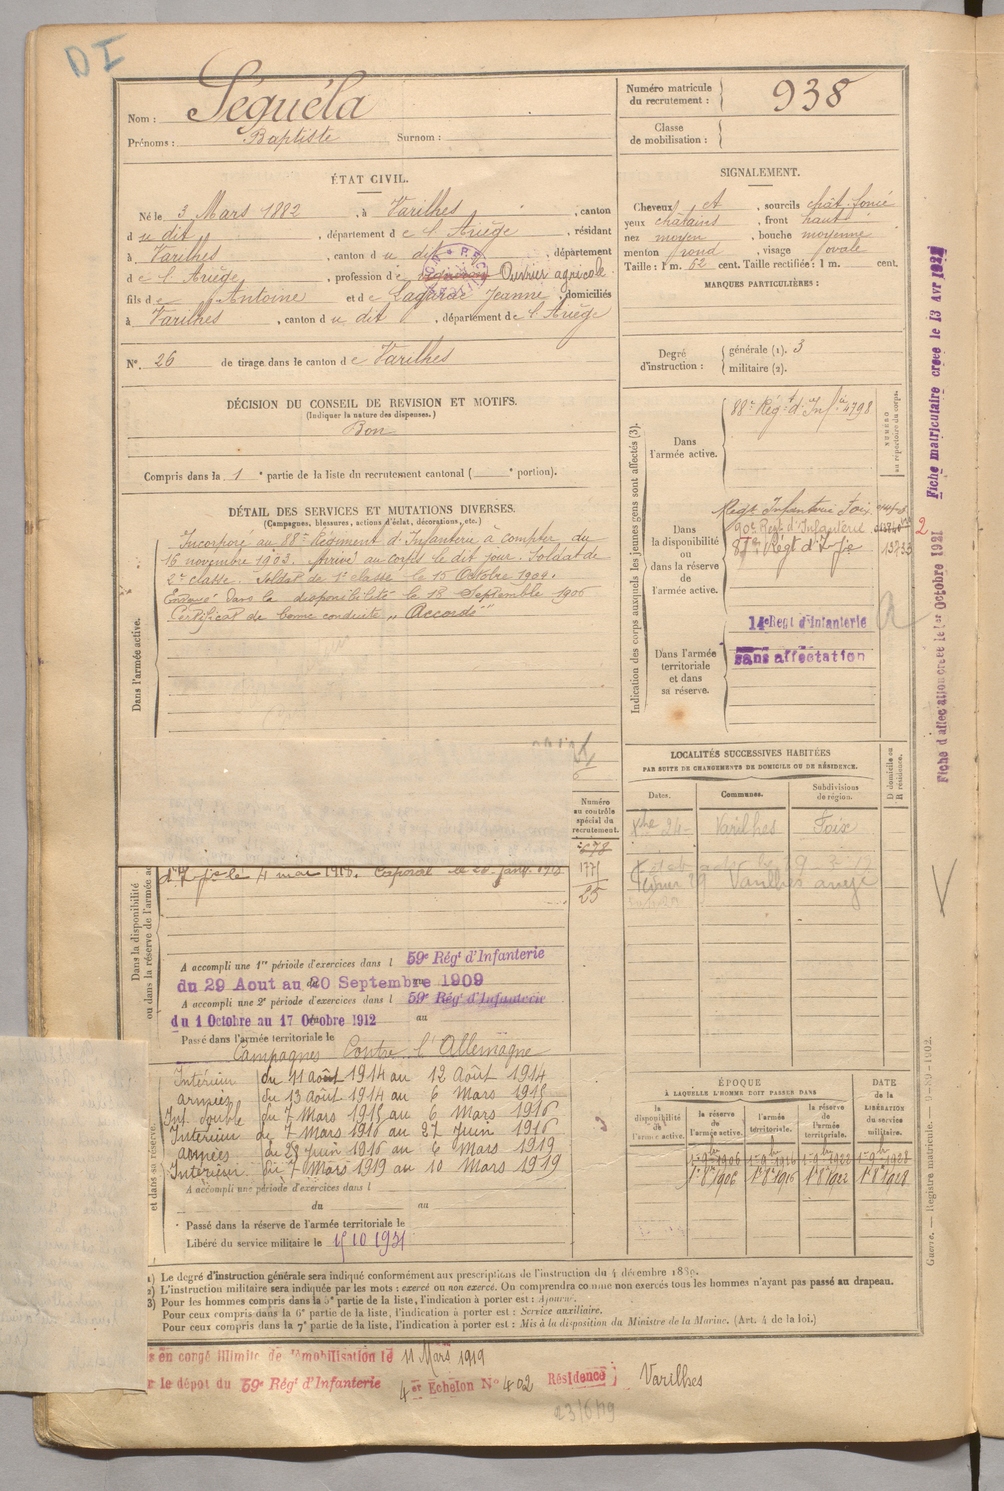 DI
Nom : Séguéla
Prénoms : Baptiste Surnom :
ÉTAT CIVIL.
Né le 3 Mars 1882, à Varilhes, canton
d u dit, département d e l'Ariège, résidant
à Varilhes, canton d u dit, département
d e l'Ariège, profession d e Ouvrier agricole
fils d e Antoine et d e Lagarde Jeanne, domiciliés
à Varilhes, canton d u dit, département d e l'Ariège
N° 26 de tirage dans le canton d e Varilhes
DÉCISION DU CONSEIL DE REVISION ET MOTIFS.
(Indiquer la nature des dispenses.)
Bon
Compris dans la 1e partie de la liste du recrutement cantonal ( e portion).
DÉTAIL DES SERVICES ET MUTATIONS DIVERSES.
(Campagnes, blessures, actions d'éclat, décorations, etc.)
Dans l'armée active.
Incorporé au 88e Régiment d'Infanterie à compter du
16 novembre 1903. Arrivé au corps le dit jour. Soldat de
2e classe. Soldat de 1e classe le 15 Octobre 1904.
Envoyé dans la disponibilité le 18 Septembre 1906
Certificat de bonne conduite " Accordé "
Numéro au contrôle spécial du recrutement.
678
1771
25
Dans la disponibilité
ou dans la réserve de l'armée ac
d'Infie le 4 mai 1918. Caporal le
A accompli une 1re période d'exercices dans l 59e Régt d'Infanterie
du 29 Aout au 20 Septembre 1909
A accompli une 2e période d'exercices dans l 59e Régt d'Infanterie
du 1 Octobre au 17 Octobre 1912 au
Passé dans l'armée territoriale le
Campagnes Contre l'Allemagne
et dans sa réserve.
Intérieur du 11 août 1914 au 12 Août 1914
armées du 13 Août 1914 au 6 Mars 1915
Int. double du 7 Mars 1915 au 6 Mars 1916
Intérieur du 7 Mars 1916 au 27 Juin 1916
armées du 28 Juin 1916 au 6 Mars 1919
Intérieur du 7 Mars 1919 au 10 Mars 1919
A accompli une période d'exercices dans l
du au
Passé dans la réserve de l'armée territoriale le
Libéré du service militaire le 15 10 1931
Numéro matricule du recrutement : 938
Classe de mobilisation :
SIGNALEMENT.
Cheveux et, sourcils chât. foncé
yeux châtains, front haut
nez moyen, bouche moyenne
menton rond, visage ovale
Taille : 1 m. 62 cent. Taille rectifiée : 1 m. cent.
MARQUES PARTICULIÈRES :
Degré d'instruction : générale (1). 3
militaire (2).
Indication des corps auxquels les jeunes gens sont affectés (3).
NUMÉRO au répertoire du corps.
Dans l'armée active.
88e Régt d'Infie 4798
Dans la disponibilité ou dans la réserve de l'armée active.
Regt Infanterie Foix
90e Regt d'Infanterie
87e Régt d'Infie 13733
2
14e Regt d'Infanterie
Dans l'armée territoriale et dans sa réserve.
sans affectation
LOCALITÉS SUCCESSIVES HABITÉES
PAR SUITE DE CHANGEMENTS DE DOMICILE OU DE RÉSIDENCE.
Dates. Communes. Subdivisions de région. D. domicile ou R. résidence.
Xbre 24 Varilhes Foix
29 Varilhes
ÉPOQUE
À LAQUELLE L'HOMME DOIT PASSER DANS
DATE de la LIBÉRATION du service militaire.
la disponibilité de l'armée active. la réserve de l'armée active. l'armée territoriale. la réserve de l'armée territoriale.
1er 9bre 1906 1er 9bre 1916 1er 9bre 1922 1er 9bre 1928
1er 8bre 1906 1er 8bre 1916 1er 8bre 1922 1er 8bre 1928
Fiche matriculaire créée le 13 Avr
Fiche d'affectation créée le 1er Octobre 1921
Guerre. — Registre matricule. — 9-89-1902.
1) Le degré d'instruction générale sera indiqué conformément aux prescriptions de l'instruction du 4 décembre 1889.
2) L'instruction militaire sera indiquée par les mots : exercé ou non exercé. On comprendra comme non exercés tous les hommes n'ayant pas passé au drapeau.
3) Pour les hommes compris dans la 5e partie de la liste, l'indication à porter est : Ajourné.
Pour ceux compris dans la 6e partie de la liste, l'indication à porter est : Service auxiliaire.
Pour ceux compris dans la 7e partie de la liste, l'indication à porter est : Mis à la disposition du Ministre de la Marine. (Art. 4 de la loi.)
en congé illimité de démobilisation le 11 Mars 1919
r le dépot du 59e Régt d'Infanterie 4er Echelon N° 402 Résidence Varilhes
23/6/19